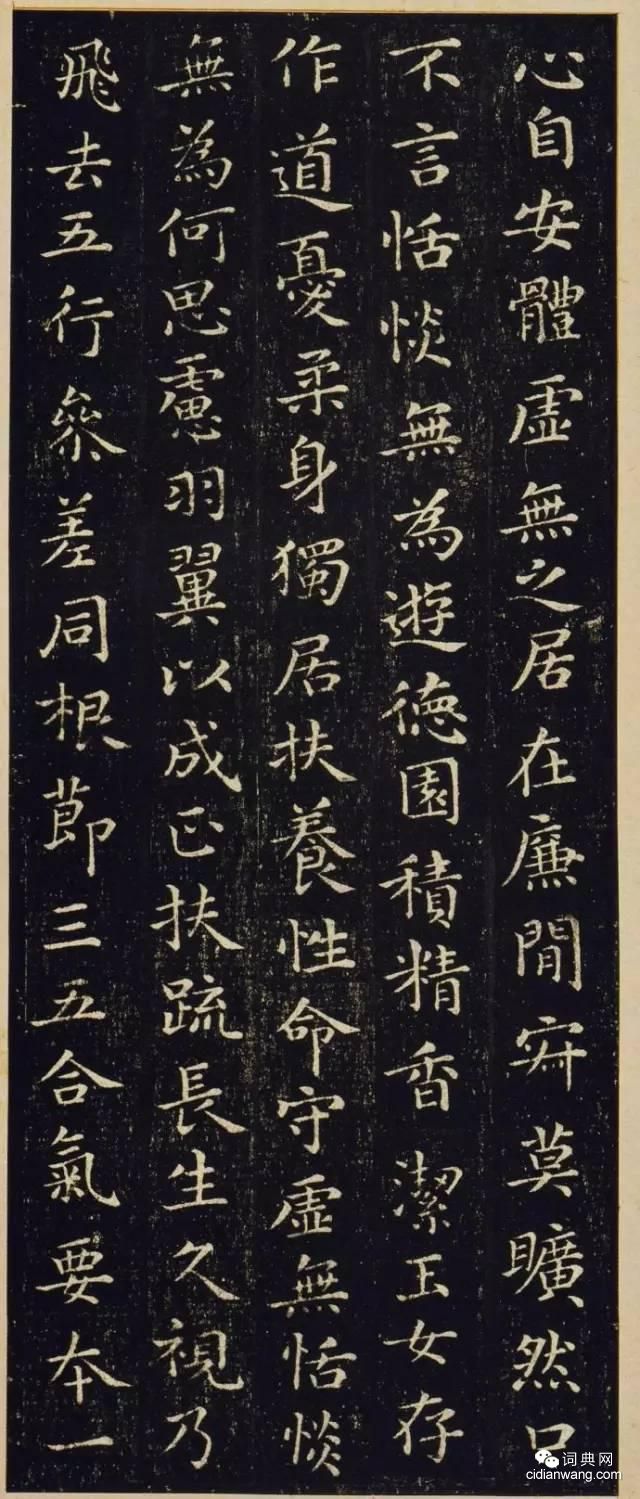 心自安體虛無之居在廉閒寂莫曠然口
不言恬惔無為遊德園積精香潔玉女存
作道憂柔身獨居扶養性命守虛無恬惔
無為何思慮羽翼以成正扶疏長生久視乃
飛去五行參差同根節三五合氣要本一
词典网
cidianwang.com